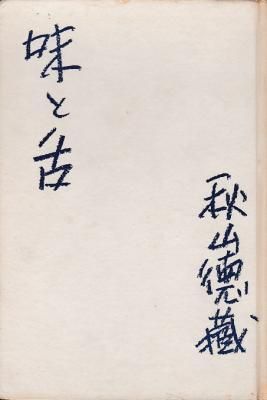 味と舌
秋山德蔵